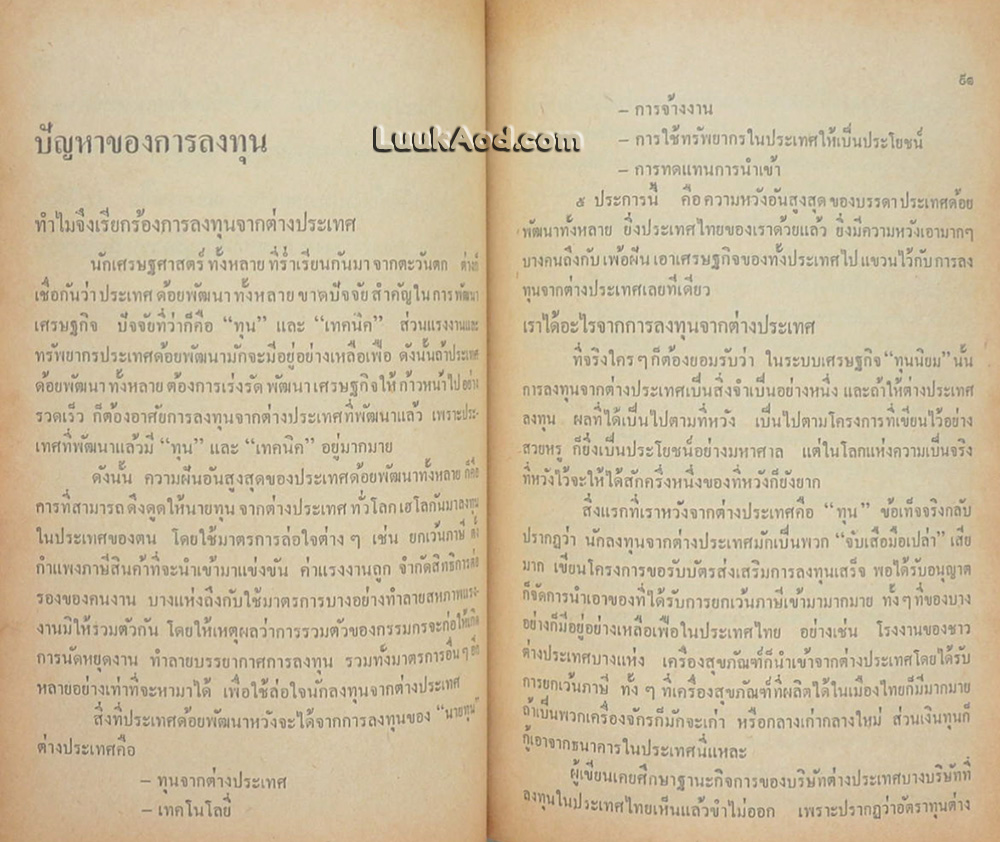 ปัญหาของการลงทุน
ทำไมจึงเรียกร้องการลงทุนจากต่างประเทศ
นักเศรษฐศาสตร์ ทั้งหลาย ที่ร่ำเรียนกันมา จากตะวันตก ต่างก็
เชื่อกันว่า ประเทศ ด้อยพัฒนา ทั้งหลาย ขาดปัจจัย สำคัญใน การ พัฒนา
เศรษฐกิจ ปัจจัยที่ว่าก็คือ “ทุน” และ “เทคนิค” ส่วนแรงงานและ
ทรัพยากรประเทศด้อยพัฒนามักจะมีอยู่อย่างเหลือเฟือ ดังนั้นถ้าประเทศ
ด้อยพัฒนา ทั้งหลาย ต้องการเร่งรัด พัฒนา เศรษฐกิจให้ ก้าวหน้าไป อย่าง
รวดเร็ว ก็ต้องอาศัยการลงทุนจากต่างประเทศที่พัฒนาแล้ว เพราะประ-
เทศที่พัฒนาแล้วมี “ทุน” และ “เทคนิค” อยู่มากมาย
ดังนั้น ความฝันอันสูงสุดของประเทศด้อยพัฒนาทั้งหลาย ก็คือ
การที่สามารถ ดึงดูดให้นายทุน จากต่างประเทศ ทั่วโลก เฮโลกันมาลงทุน
ในประเทศของตน โดยใช้มาตรการล่อใจต่าง ๆ เช่น ยกเว้นภาษี ตั้ง
กำแพงภาษีสินค้าที่จะนำเข้ามาแข่งขัน ค่าแรงงานถูก จำกัดสิทธิการต่อ
รองของคนงาน บางแห่งถึงกับใช้มาตรการบางอย่างทำลายสหภาพแรง-
งานมิให้รวมตัวกัน โดยให้เหตุผลว่าการรวมตัวของกรรมกรจะก่อให้เกิด
การนัดหยุดงาน ทำลายบรรยากาศการลงทุน รวมทั้งมาตรการอื่นๆ อีก
หลายอย่างเท่าที่จะหามาได้ เพื่อใช้ล่อใจนักลงทุนจากต่างประเทศ
สิ่งที่ประเทศด้อยพัฒนาหวังจะได้จากการลงทุนของ “นายทุน”
ต่างประเทศคือ
– ทุนจากต่างประเทศ
– เทคโนโลยี่
LuukAod.com
๕๑
– การจ้างงาน
– การใช้ทรัพยากรในประเทศให้เป็นประโยชน์
– การทดแทนการนำเข้า
๕ ประการนี้ คือ ความหวังอันสูงสุด ของบรรดา ประเทศด้อย
พัฒนาทั้งหลาย ยิ่งประเทศไทยของเราด้วยแล้ว ยิ่งมีความหวังเอามากๆ
บางคนถึงกับ เพ้อฝัน เอาเศรษฐกิจของทั้งประเทศไป แขวนไว้กับ การลง
ทุนจากต่างประเทศเลยทีเดียว
เราได้อะไรจากการลงทุนจากต่างประเทศ
ที่จริงใคร ๆ ก็ต้องยอมรับว่า ในระบบเศรษฐกิจ “ทุนนิยม” นั้น
การลงทุนจากต่างประเทศเป็นสิ่งจำเป็นอย่างหนึ่ง และถ้าให้ต่างประเทศ
ลงทุน ผลที่ได้เป็นไปตามที่หวัง เป็นไปตามโครงการที่เขียนไว้อย่าง
สวยหรู ก็ยิ่งเป็นประโยชน์อย่างมหาศาล แต่ในโลกแห่งความเป็นจริง
ที่หวังไว้จะให้ได้สักครึ่งหนึ่งของที่หวังก็ยังยาก
สิ่งแรกที่เราหวังจากต่างประเทศคือ “ทุน” ข้อเท็จจริงกลับ
ปรากฏว่า นักลงทุนจากต่างประเทศมักเป็นพวก “จับเสือมือเปล่า” เสีย
มาก เขียนโครงการขอรับบัตรส่งเสริมการลงทุนเสร็จ พอได้รับอนุญาต
ก็จัดการนำเอาของที่ได้รับการยกเว้นภาษีเข้ามามากมาย ทั้งๆที่ของบาง
อย่างก็มีอยู่อย่างเหลือเฟือในประเทศไทย อย่างเช่น โรงงานของชาว
ต่างประเทศบางแห่ง เครื่องสุขภัณฑ์ก็นำเข้าจากต่างประเทศโดยได้รับ
การยกเว้นภาษี ทั้ง ๆ ที่เครื่องสุขภัณฑ์ที่ผลิตได้ในเมืองไทยก็มีมากมาย
ถ้าเป็นพวกเครื่องจักรก็มักจะเก่า หรือกลางเก่ากลางใหม่ ส่วนเงินทุนก็
กู้เอาจากธนาคารในประเทศนี่แหละ
ผู้เขียนเคยศึกษาฐานะกิจการของบริษัทต่างประเทศบางบริษัทที่
ลงทุนในประเทศไทยเห็นแล้วขำไม่ออก เพราะปรากฏว่าอัตราทุนต่าง